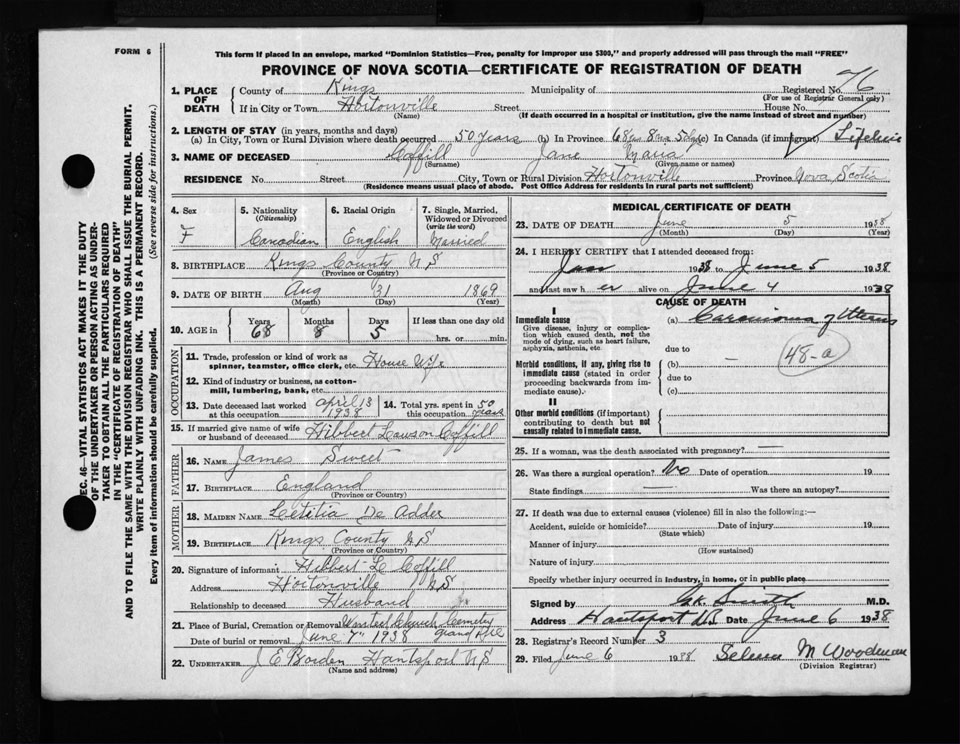 FORM 6
This form if placed in an envelope, marked "Dominion Statistics—Free, penalty for improper use $300," and properly addressed will pass through the mail "FREE"
PROVINCE OF NOVA SCOTIA—CERTIFICATE OF REGISTRATION OF DEATH
1. PLACE OF DEATH
County of Kings Municipality of Registered No. 76
(For use of Registrar General only)
If in City or Town Hortonville Street House No.
(Name) (If death occurred in a hospital or institution, give the name instead of street and number)
2. LENGTH OF STAY (in years, months and days)
(a) In City, Town or Rural Division where death occurred 50 Years (b) In Province 68 yrs 8 ms 5 dys (c) In Canada (if immigrant) Lifetime
3. NAME OF DECEASED Coffill Jane Maria
(Surname) (Given name or names)
RESIDENCE No. Street City, Town or Rural Division Hortonville Province Nova Scotia
(Residence means usual place of abode. Post Office Address for residents in rural parts not sufficient)
4. Sex F
5. Nationality (Citizenship) Canadian
6. Racial Origin English
7. Single, Married, Widowed or Divorced (write the word) Married
8. BIRTHPLACE Kings County N S
(Province or Country)
9. DATE OF BIRTH Aug 31 1869
(Month) (Day) (Year)
10. AGE in Years 68 Months 8 Days 5 If less than one day old hrs. or min.
OCCUPATION
11. Trade, profession or kind of work as spinner, teamster, office clerk, etc. House Wife
12. Kind of industry or business, as cotton-mill, lumbering, bank, etc.
13. Date deceased last worked at this occupation April 13 1938
14. Total yrs. spent in this occupation 50 years
15. If married give name of wife or husband of deceased Hibbert Lawson Coffill
FATHER
16. NAME James Sweet
17. BIRTHPLACE England
(Province or Country)
MOTHER
18. MAIDEN NAME Letitia De Adder
19. BIRTHPLACE Kings County N S
(Province or Country)
20. Signature of informant Hibbert L Coffill
Address Hortonville N S
Relationship to deceased Husband
21. Place of Burial, Cremation or Removal United Church Cemetry Grand Pre
Date of burial or removal June 7th 1938
22. UNDERTAKER J E Borden Hantsport N S
(Name and address)
MEDICAL CERTIFICATE OF DEATH
23. DATE OF DEATH June 5 1938
(Month) (Day) (Year)
24. I HEREBY CERTIFY that I attended deceased from:
Jan 1938 to June 5 1938
and last saw her alive on June 4 1938
CAUSE OF DEATH
I
Immediate cause (a) Carcinoma of Uterus
Give disease, injury or complication which caused death, not the mode of dying, such as heart failure, asphyxia, asthenia, etc.
48-a
due to
Morbid conditions, if any, giving rise to immediate cause (stated in order proceeding backwards from immediate cause).
(b) —
due to
(c)
II
Other morbid conditions (if important) contributing to death but not causally related to immediate cause.
25. If a woman, was the death associated with pregnancy? —
26. Was there a surgical operation? No Date of operation 19
State findings — Was there an autopsy?
27. If death was due to external causes (violence) fill in also the following:—
Accident, suicide or homicide? Date of injury 19
(State which)
Manner of injury
(How sustained)
Nature of injury
Specify whether injury occurred in industry, in home, or in public place
Signed by Smith M.D.
Address Hantsport N.S. Date June 6 1938
28. Registrar's Record Number 3
29. Filed June 6 1938 Selena M Woodman
(Division Registrar)
SEC. 46—VITAL STATISTICS ACT MAKES IT THE DUTY
OF THE UNDERTAKER OR PERSON ACTING AS UNDER-
TAKER TO OBTAIN ALL THE PARTICULARS REQUIRED
IN THE "CERTIFICATE OF REGISTRATION OF DEATH"
AND TO FILE THE SAME WITH THE DIVISION REGISTRAR WHO SHALL ISSUE THE BURIAL PERMIT.
WRITE PLAINLY WITH UNFADING INK. THIS IS A PERMANENT RECORD.
Every item of information should be carefully supplied. (See reverse side for instructions.)